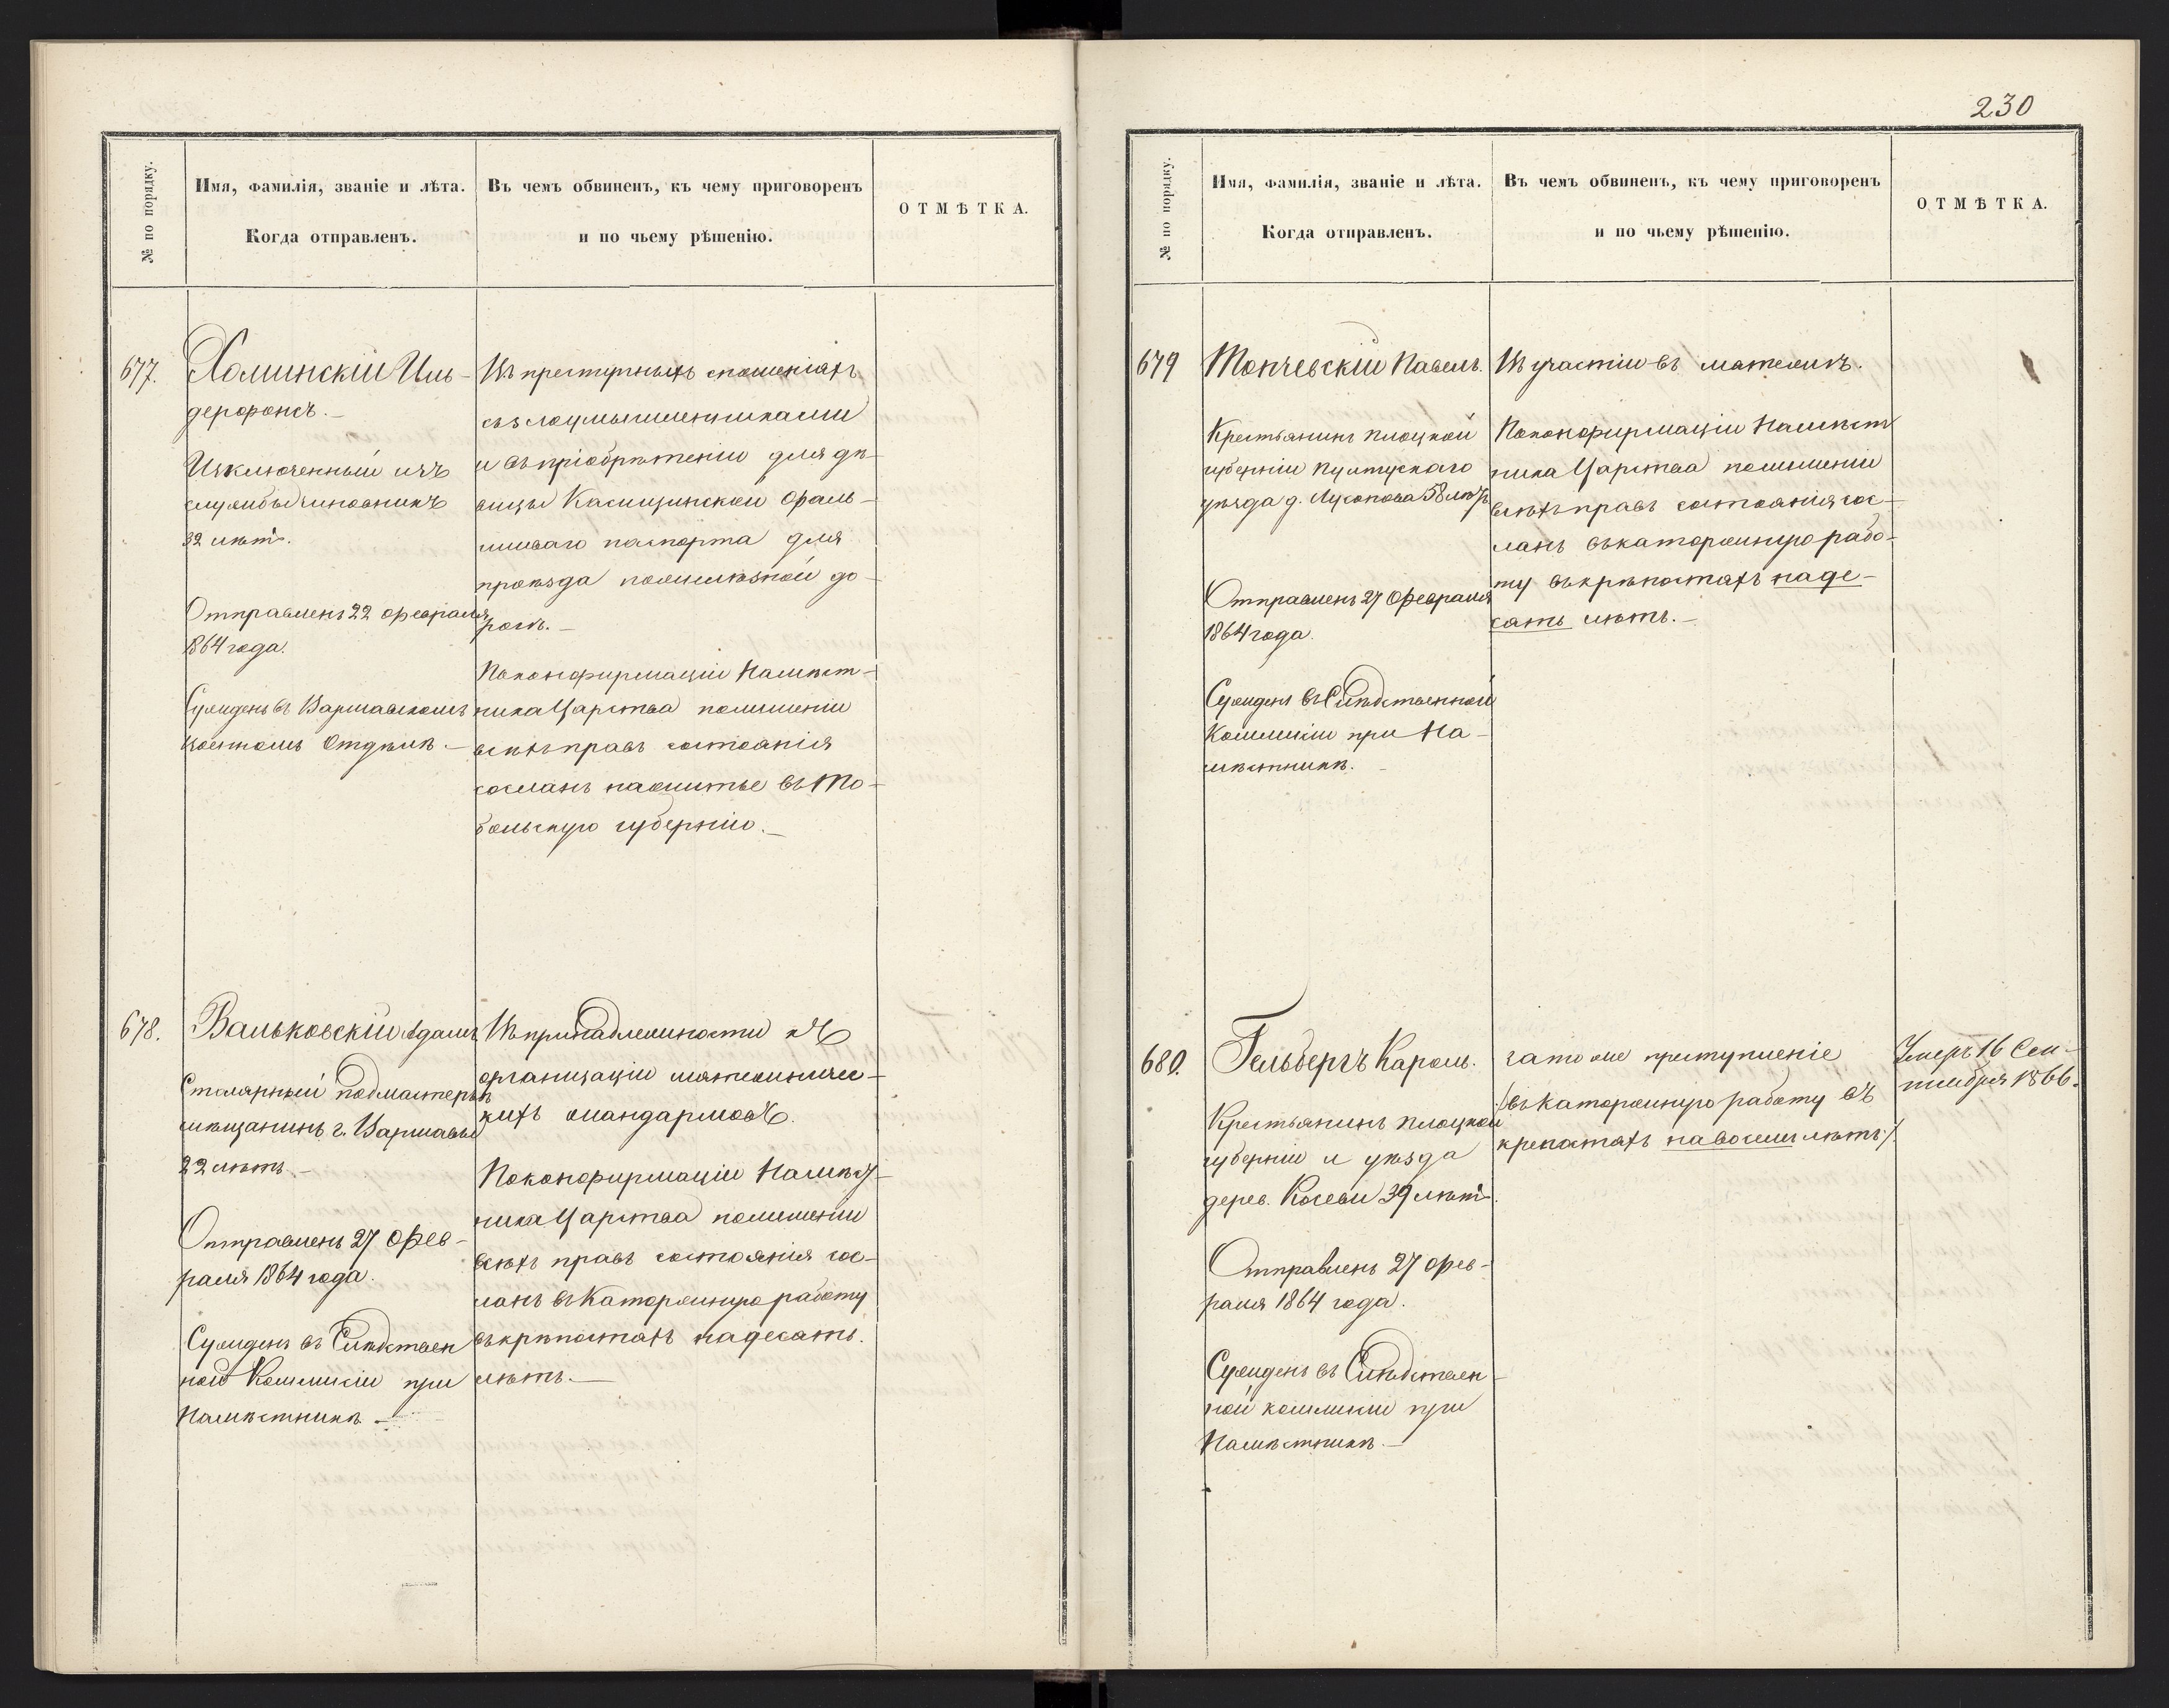 230
№ по порядку.
Имя, фамилія, званіе и лѣта.
Когда отправленъ.
Въ чемъ обвиненъ, къ чему приговоренъ
и по чьему рѣшенію.
ОТМѢТКА.
677.
Хоминскій Иль-
дерфонсъ.-
Изключенный изъ
службы чиновникъ
32 лѣтъ.
Отправленъ 22 февраля
1864 года.
Сужденъ въ Варшавскомъ
Военномъ Отдѣлѣ.-
Въ преступныхъ сношеніяхъ
съ злоумышленниками
и въ пріобрѣтеніи для дѣ-
вицы фаль-
шиваго паспорта для
проѣзда по желѣзной до-
рогѣ.-
По конфирмаціи Намѣст-
ника Царства по лишеніи
всѣхъ правъ состоянія
сосланъ на житье въ То-
больскую губернію.-
678.
Вальковскій Адамъ
Столярный подмастерье
мѣщанинъ г. Варшавы
22 лѣтъ.-
Отправленъ 27 Фев-
раля 1864 года.
Сужденъ въ Слѣдствен
ной Коммисіи при
Намѣстникѣ.-
Въ принадлежности къ
организаціи мятежничес-
кихъ жандармовъ.
По конфирмаціи Намѣст-
ника Царства по лишеніи
всѣхъ правъ состоянія сос-
ланъ въ Каторжную работу
въ крѣпостяхъ на десять
лѣтъ.-
№ по порядку.
Имя, фамилія, званіе и лѣта.
Когда отправленъ.
Въ чемъ обвиненъ, къ чему приговоренъ
и по чьему рѣшенію.
ОТМѢТКА.
679
Топчевскій Павелъ.
Крестьянинъ Плоцкой
губерніи Пултускаго
уѣзда д. 58 лѣтъ
Отправленъ 27 Февраля
1864 года.
Сужденъ въ Слѣдственной
Коммисіи при На-
мѣстникѣ.
Въ участіи въ мятежѣ.
По конфирмаціи Намѣст
ника Царства по лишеніи
всѣхъ правъ состоянія сос-
ланъ въ каторжную рабо-
ту въ крѣпостяхъ на де-
сять лѣтъ.-
680.
Гельбергъ Кароль.
Крестьянинъ Плоцкой
губерніи и уѣзда
дерев. 39 лѣтъ.
Отправленъ 27 фев-
раля 1864 года.
Сужденъ въ Слѣдствен-
ной коммисіи при
Намѣстникѣ.-
за то же преступленіе
/въ каторжную работу въ
крепостяхъ на восемь лѣтъ/.
Умеръ 16 Сен-
тября 1866.